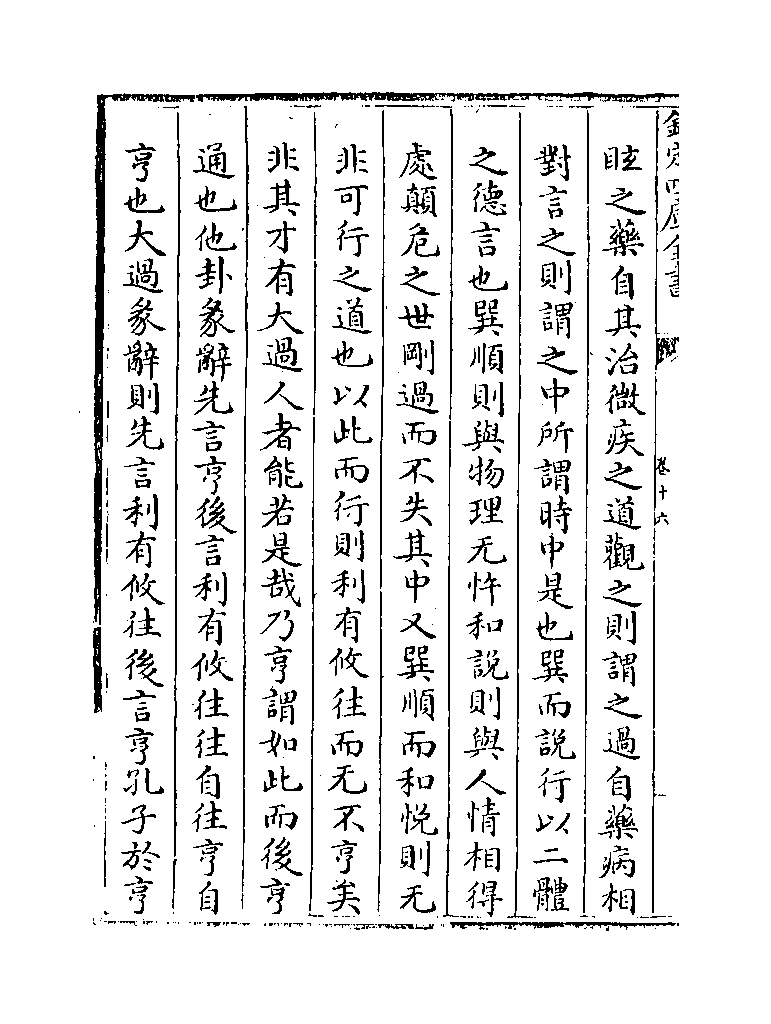 欽定四庫全書
卷十六
眩之藥自其治微疾之道觀之則謂之過自藥病相
對言之則謂之中所謂時中是也巽而說行以二體
之德言也巽順則與物理无忤和說則與人情相得
處顛危之世剛過而不失其中又巽順而和悅則无
非可行之道也以此而行則利有攸往而无不亨矣
非其才有大過人者能若是哉乃亨謂如此而後亨
通也他卦彖辭先言亨後言利有攸往往自往亨自
亨也大過彖辭則先言利有攸往後言亨孔子於亨